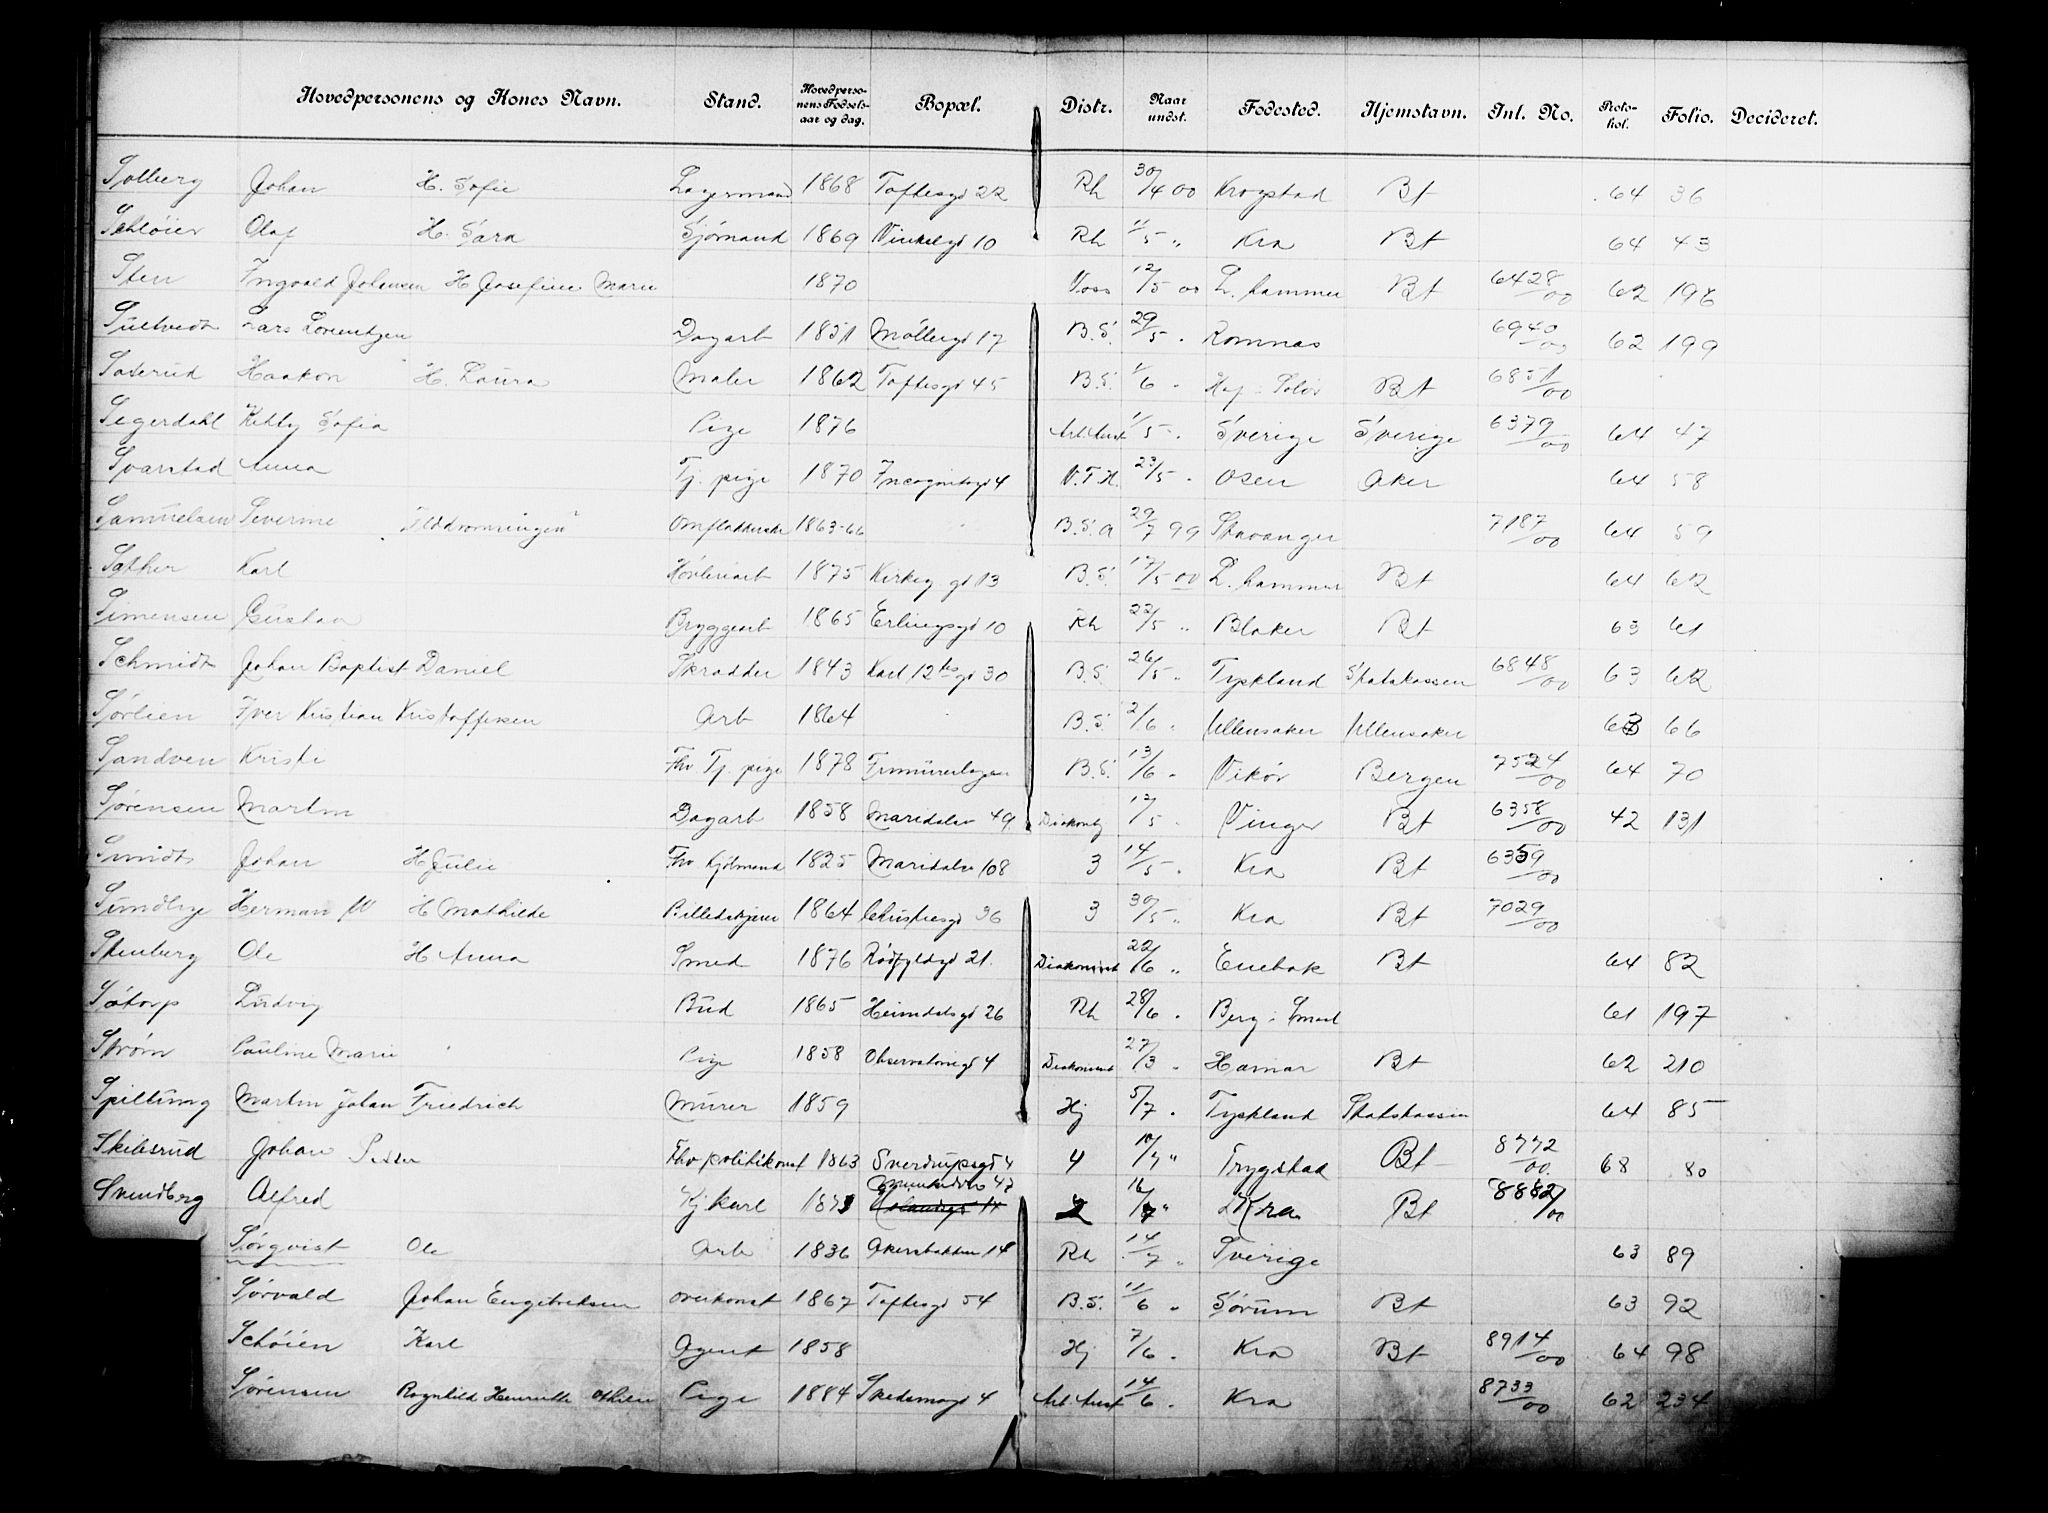 Hovedpersonens og Kones Navn. Stand. Hovedperso-nens Fødsels-aar og dag. Bopæl. Distr. Naar undst. Fødested. Hjemstavn. Inl. No. Proto-kol. Folio. Decideret.
Solberg Johan H. Sofie Lagermand 1868 Toftesgd 22 Rh 30/4 00 Krogstad Bt 64 36
Schlöier Olaf H. Sara Sjömand 1869 Vinkelgd 10 Rh 11/5 " Kra Bt 64 43
Sten Ingvald Johansen H Josefine Marie 1870 Voss 12/5 00 L. hammer Bt 6428/00 62 196
Lars Lorentzen Dagarb 1851 Möllergd 17 B.S. 29/5 . Romnæs 6940/00 62 199
Sæterud Haakon H. Laura Maler 1862 Toftesgd 45 B.S. 1/6 " Hof Solör Bt 6851/00
Segerdahl Ketty Sofia Pige 1876 Arb Anst 1/5 . Sverige Sverige 6379/00 64 47
Svarstad Anna Tj. pige 1870 Incognitogd 4 V.T.H. 23/5 . Osen Aker 64 58
Samuelsen Severine Omflakkerske 1863-66 B.S. a 29/7 99 Stavanger 7187/00 64 59
Sæther Karl Hövleriarb 1875 Kirkeg gd 13 B.S. 17/5 00 L. hammer Bt 64 62
Simensen Gustav Bryggearb 1865 Erlingsgd 10 Rh 22/5 " Blaker Bt 63 61
Schmidt Johan Baptist Daniel Skrædder 1843 Karl 12tes gd 30 B.S. 26/5 " Tyskland Statskassen 6848/00 63 62
Sörlien Iver Kristian Kristoffersen Arb 1864 B.S. 2/6 " Ullensaker Ullensaker 63 66
Sandven Kristi Fhv Tj. pige 1878 Frimurerlogen B.S. 13/6 " Vikör Bergen 7524/00 64 70
Sörensen Martin Dagarb 1858 Maridalsv 49 Diakonhj 12/5 Vinger Bt 6358/00 42 131
Smidt Johan H Julie Fhv Kjölmand 1825 Maridalsv 108 3 14/5 . Kra Bt 6359/00
Sundbye Herman W H Mathilde Billedskjærer 1864 Christiesgd 36 3 30/5 " Kra Bt 7029/00
Stenberg Ole H Anna Smed 1876 Rödfyldgd 21. Diakonint 22/6 " Enebak Bt 64 82
Sætorp Ludvig Bud 1865 Heimdalsgd 26 Rh 28/6 . Berg i Smaal 61 197
Ström Pauline Marie Pige 1858 Observatoriegd 4 Diakonint 27/3 " Hamar Bt 62 210
Martin Johan Friedrich Murer 1859 Hj 5/7 . Tyskland Statskassen 64 85
Skibsrud Johan Fhv politikonst 1863 Sverdrupsgd 4 4 10/7 " Trygstad Bt 8772/00. 68 80
Svendberg Alfred Kj karl 16/7 " Kra Bt 8882/00
Sörqvist Ole Arb 1836 Akersbakken 14 Rh 14/7 " Sverige 63 89
Sörvald Johan Engebretsen Overkonst 1867 Toftesgd 54 B.S. 11/6 " Sörum Bt 63 92
Schöien Karl Agent 1858 Hj 7/6 . Kra Bt 8914/00 64 98
Sörensen Ragnhild Henriette Othilie Pige 1884 Skedsmogd 4 Arb Anst 14/6 . Kra 8733/00 62 234